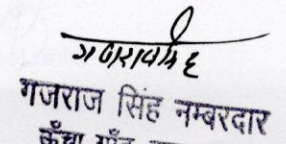 गजराजसिंह
गजराज सिंह नम्बरदार
ऊँचा गाँव